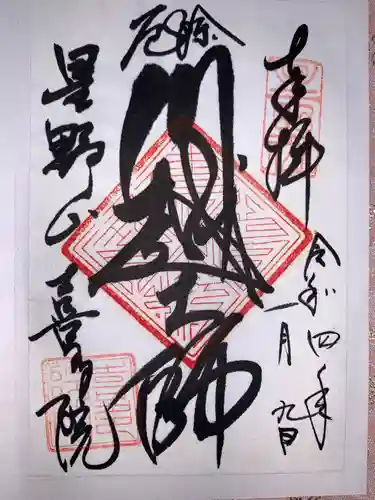 奉拝
令和四年
一月九日
厄除
川越大師
星野山
喜多院